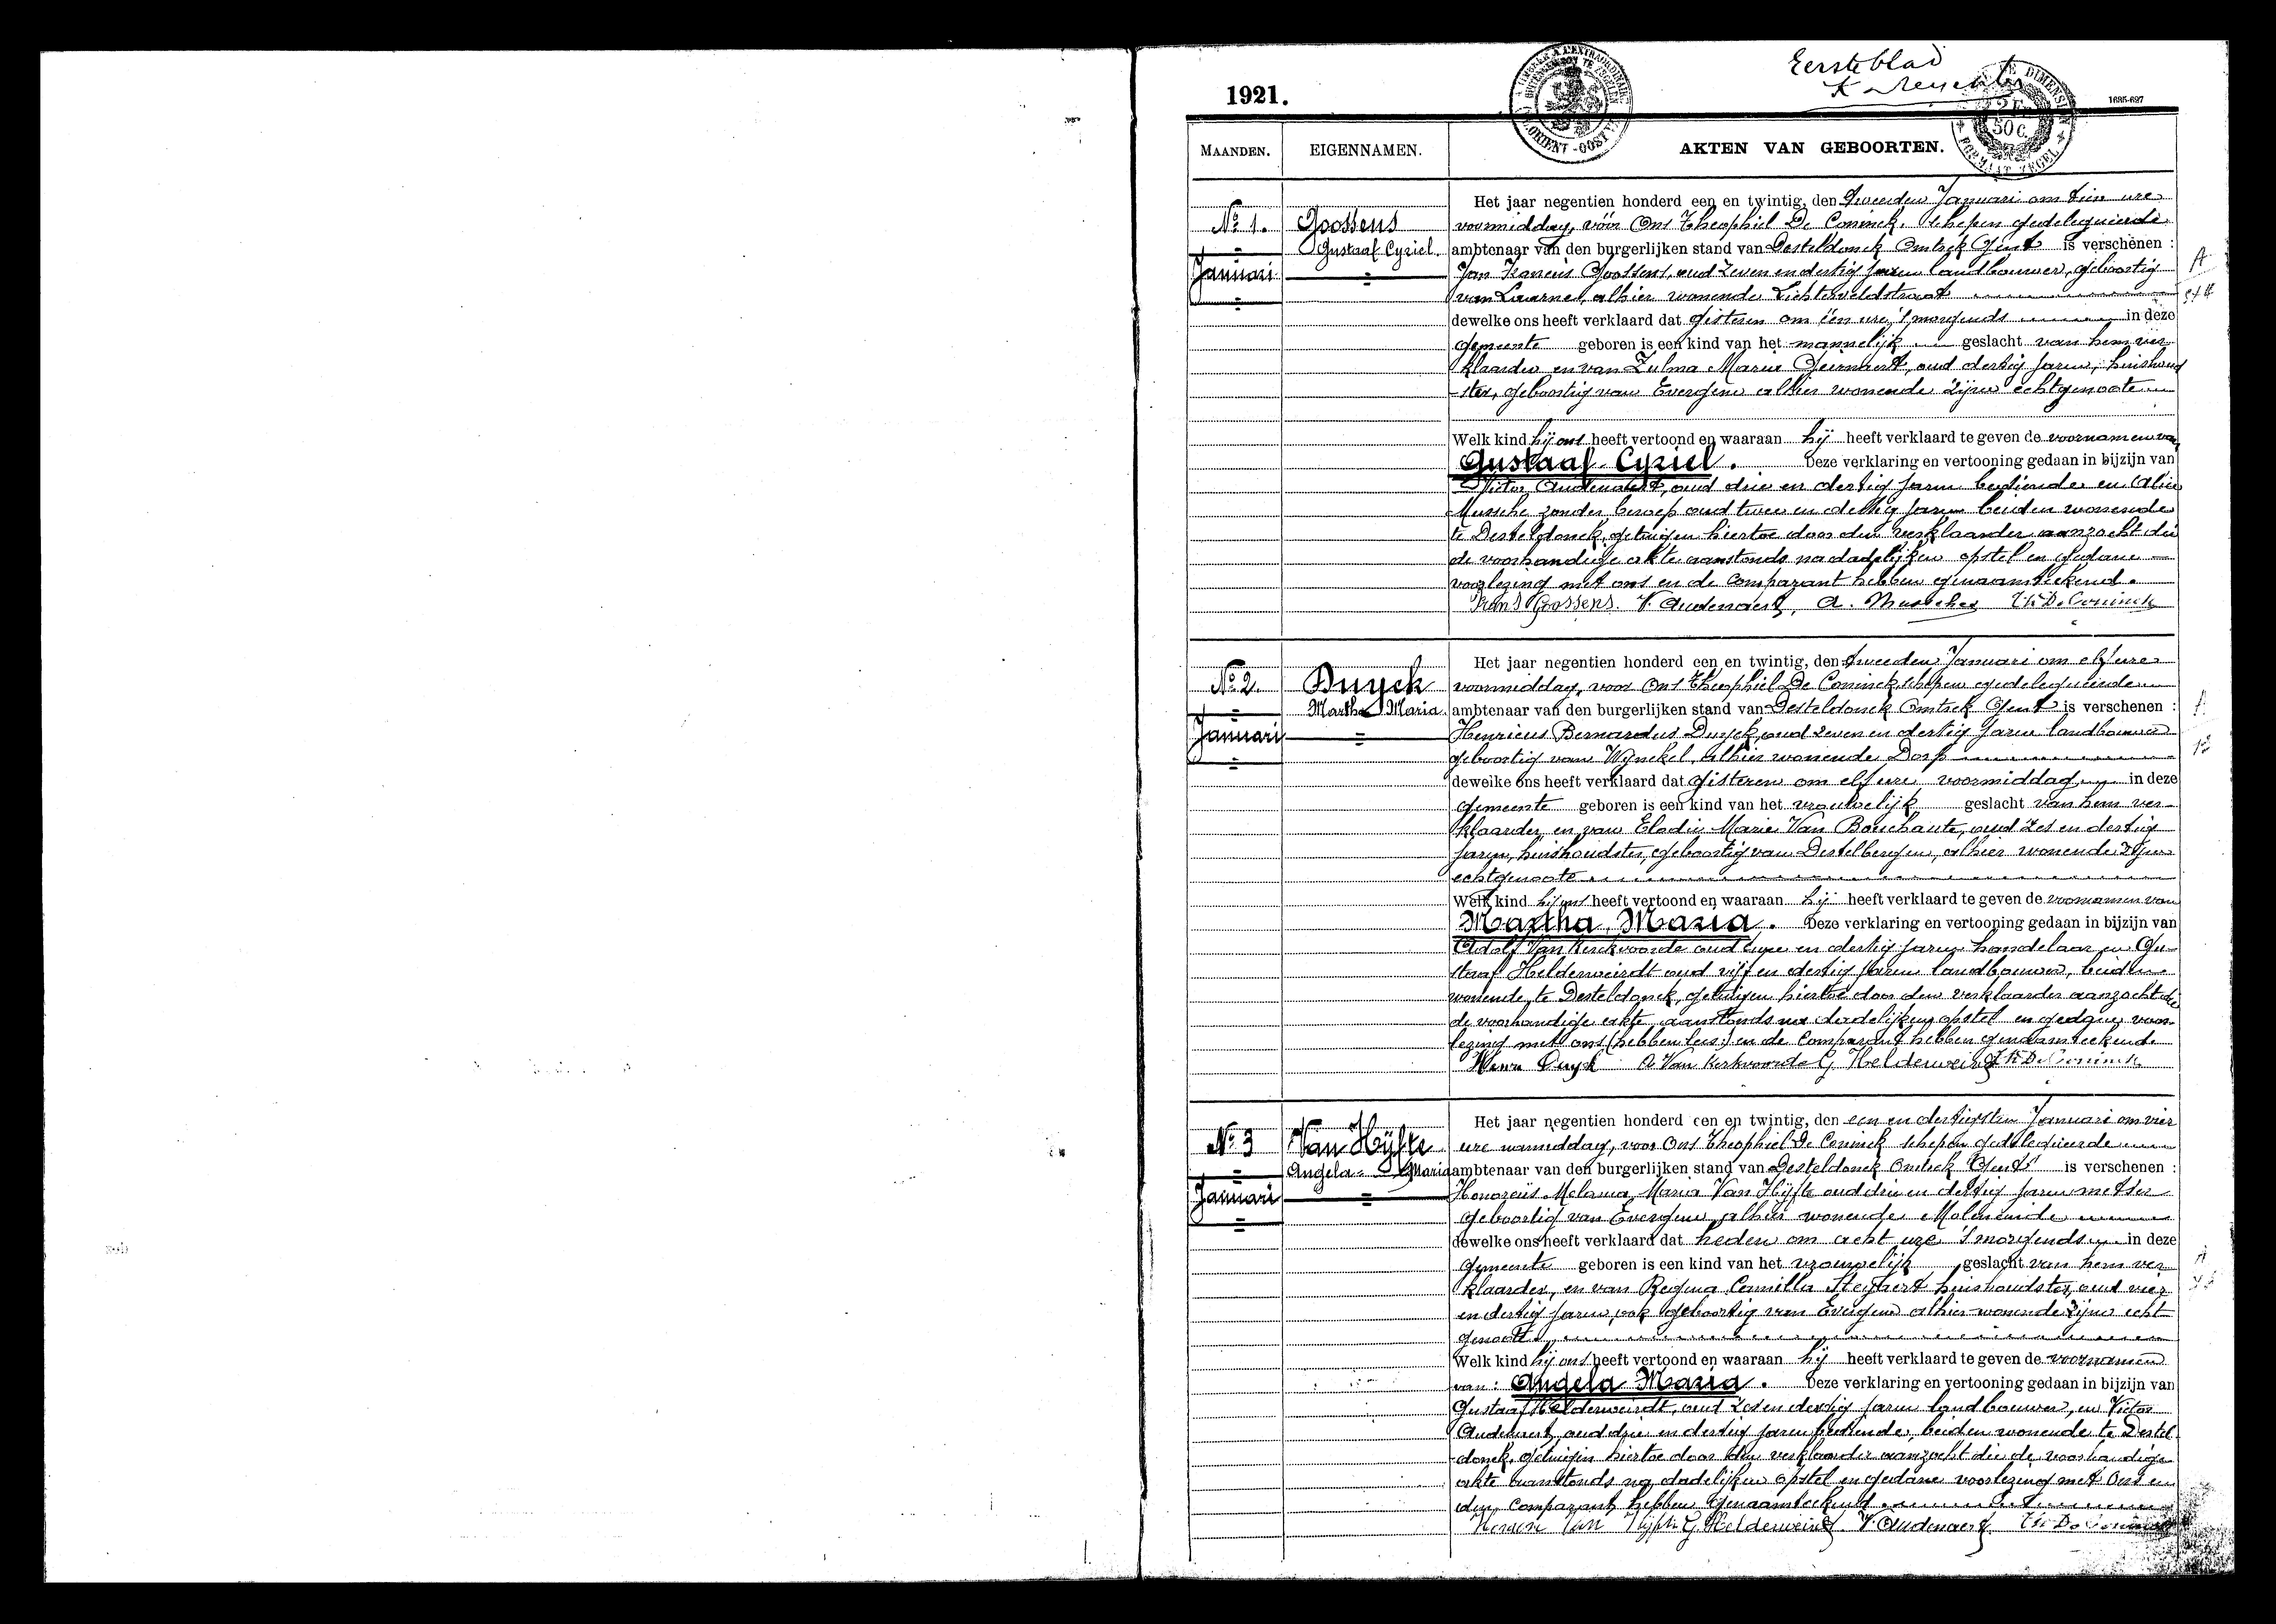 Eerste blad
1921.
1695-627
MAANDEN.
EIGENNAMEN.
AKTEN VAN GEBOORTEN.
No 1.
Januari
Goossens
Gustaaf Cyriel.
Het jaar negentien honderd een en twintig, den tweeden Januari om tien ure
voormiddag, vóór Ons Theophiel De Coninck, schepen gedelegueerde
ambtenaar van den burgerlijken stand van Desteldonck Omtrek Gent is verschenen :
Jan Francis Goossens, oud zeven en dertig jaren landbouwer, geboortig
van Laarne, alhier wonende Lichterveldstraat
dewelke ons heeft verklaard dat gisteren om één ure 's morgends in deze
gemeente geboren is een kind van het mannelijk geslacht van hem ver-
klaarder en van Zulma Marie Geirnaert, oud dertig jaren, huishoud
-ster, geboortig van Evergem alhier wonende zijne echtgenoote
Welk kind hij ons heeft vertoond en waaraan hij heeft verklaard te geven de voornamen van
Gustaaf Cyriel. Deze verklaring en vertooning gedaan in bijzijn van
Victor Audenaert, oud drie en dertig jaren bediende en Alice
Mussche zonder beroep oud twee en dertig jaren beiden wonende
te Desteldonck, getuigen hiertoe door den verklaarder aanzocht die
de voorhandige akte aanstonds na dadelijken opstel en gedane
voorlezing met ons en de Comparant hebben genaamteekend.
Frans Goossens. V. Audenaert, A. Mussche Th De Coninck
No 2.
Januari
Duyck
Martha Maria.
Het jaar negentien honderd een en twintig, den tweeden Januari om elf ure
voormiddag, voor Ons Theophiel De Coninck schepen gedelegueerde
ambtenaar van den burgerlijken stand van Desteldonck Omtrek Gent is verschenen :
Henricus Bernardus Duyck, oud zeven en dertig jaren landbouwer
geboortig van Wynckel, alhier wonende Dorp
dewelke ons heeft verklaard dat gisteren om elf ure voormiddag in deze
gemeente geboren is een kind van het vrouwelijk geslacht van hem ver-
klaarder, en van Elodie Marie Van Bouchaute, oud zes en dertig
jaren, huishoudster, geboortig van Destelbergen, alhier wonende zijne
echtgenoote
Welk kind hij ons heeft vertoond en waaraan hij heeft verklaard te geven de voornamen van
Martha Maria. Deze verklaring en vertooning gedaan in bijzijn van
Adolf Van Kerckvoorde oud en dertig jaren handelaar en Gu-
staaf Helderweirdt oud vijf en dertig jaren landbouwer, beiden
wonende te Desteldonck, getuigen hiertoe door den verklaarder aanzocht die
de voorhandige akte, aanstonds na dadelijken opstel en gedane voor-
lezing met ons (hebben lees:) en de Comparant hebben genaamteekend
Henri Duyck A Van Kerkvoorde G Helderweirdt Th De Coninck
No 3
Januari
Van Hijfte
Angela - Maria
Het jaar negentien honderd een en twintig, den een en dertigsten Januari om vier
ure namiddag, voor Ons Theophiel De Coninck schepen gedelegueerde
ambtenaar van den burgerlijken stand van Desteldonck Omtrek Gent is verschenen :
Honoreüs Melania Maria Van Hijfte oud drie en dertig jaren metser
geboortig van Evergem, alhier wonende Moleneinde
dewelke ons heeft verklaard dat heden om acht ure 's morgends in deze
gemeente geboren is een kind van het vrouwelijk geslacht van hem ver
klaarder, en van Regina Camilla Steyaert huishoudster, oud vier
en dertig jaren, ook geboortig van Evergem alhier wonende zijne echt
genoote
Welk kind hij ons heeft vertoond en waaraan hij heeft verklaard te geven de voornamen
van: Angela Maria. Deze verklaring en vertooning gedaan in bijzijn van
Gustaaf Helderweirdt, oud zes en dertig jaren landbouwer, en Victor
Audenaert, oud drie en dertig jaren bediende, beiden wonende te Destel
-donck, getuigen hiertoe door den verklaarder aanzocht die de voorhandige
akte aanstonds na dadelijken opstel en gedane voorlezing met Ons en
den Comparant hebben genaamteekend.
Van Hijfte G. Helderweirdt. V. Audenaert Th De Coninck